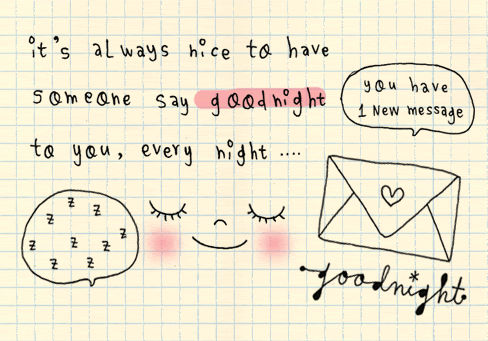 it's always nice to have
someone say goodnight
to you, every night ....
you have
1 New message
z z z
z
z z z z
z z
goodnight